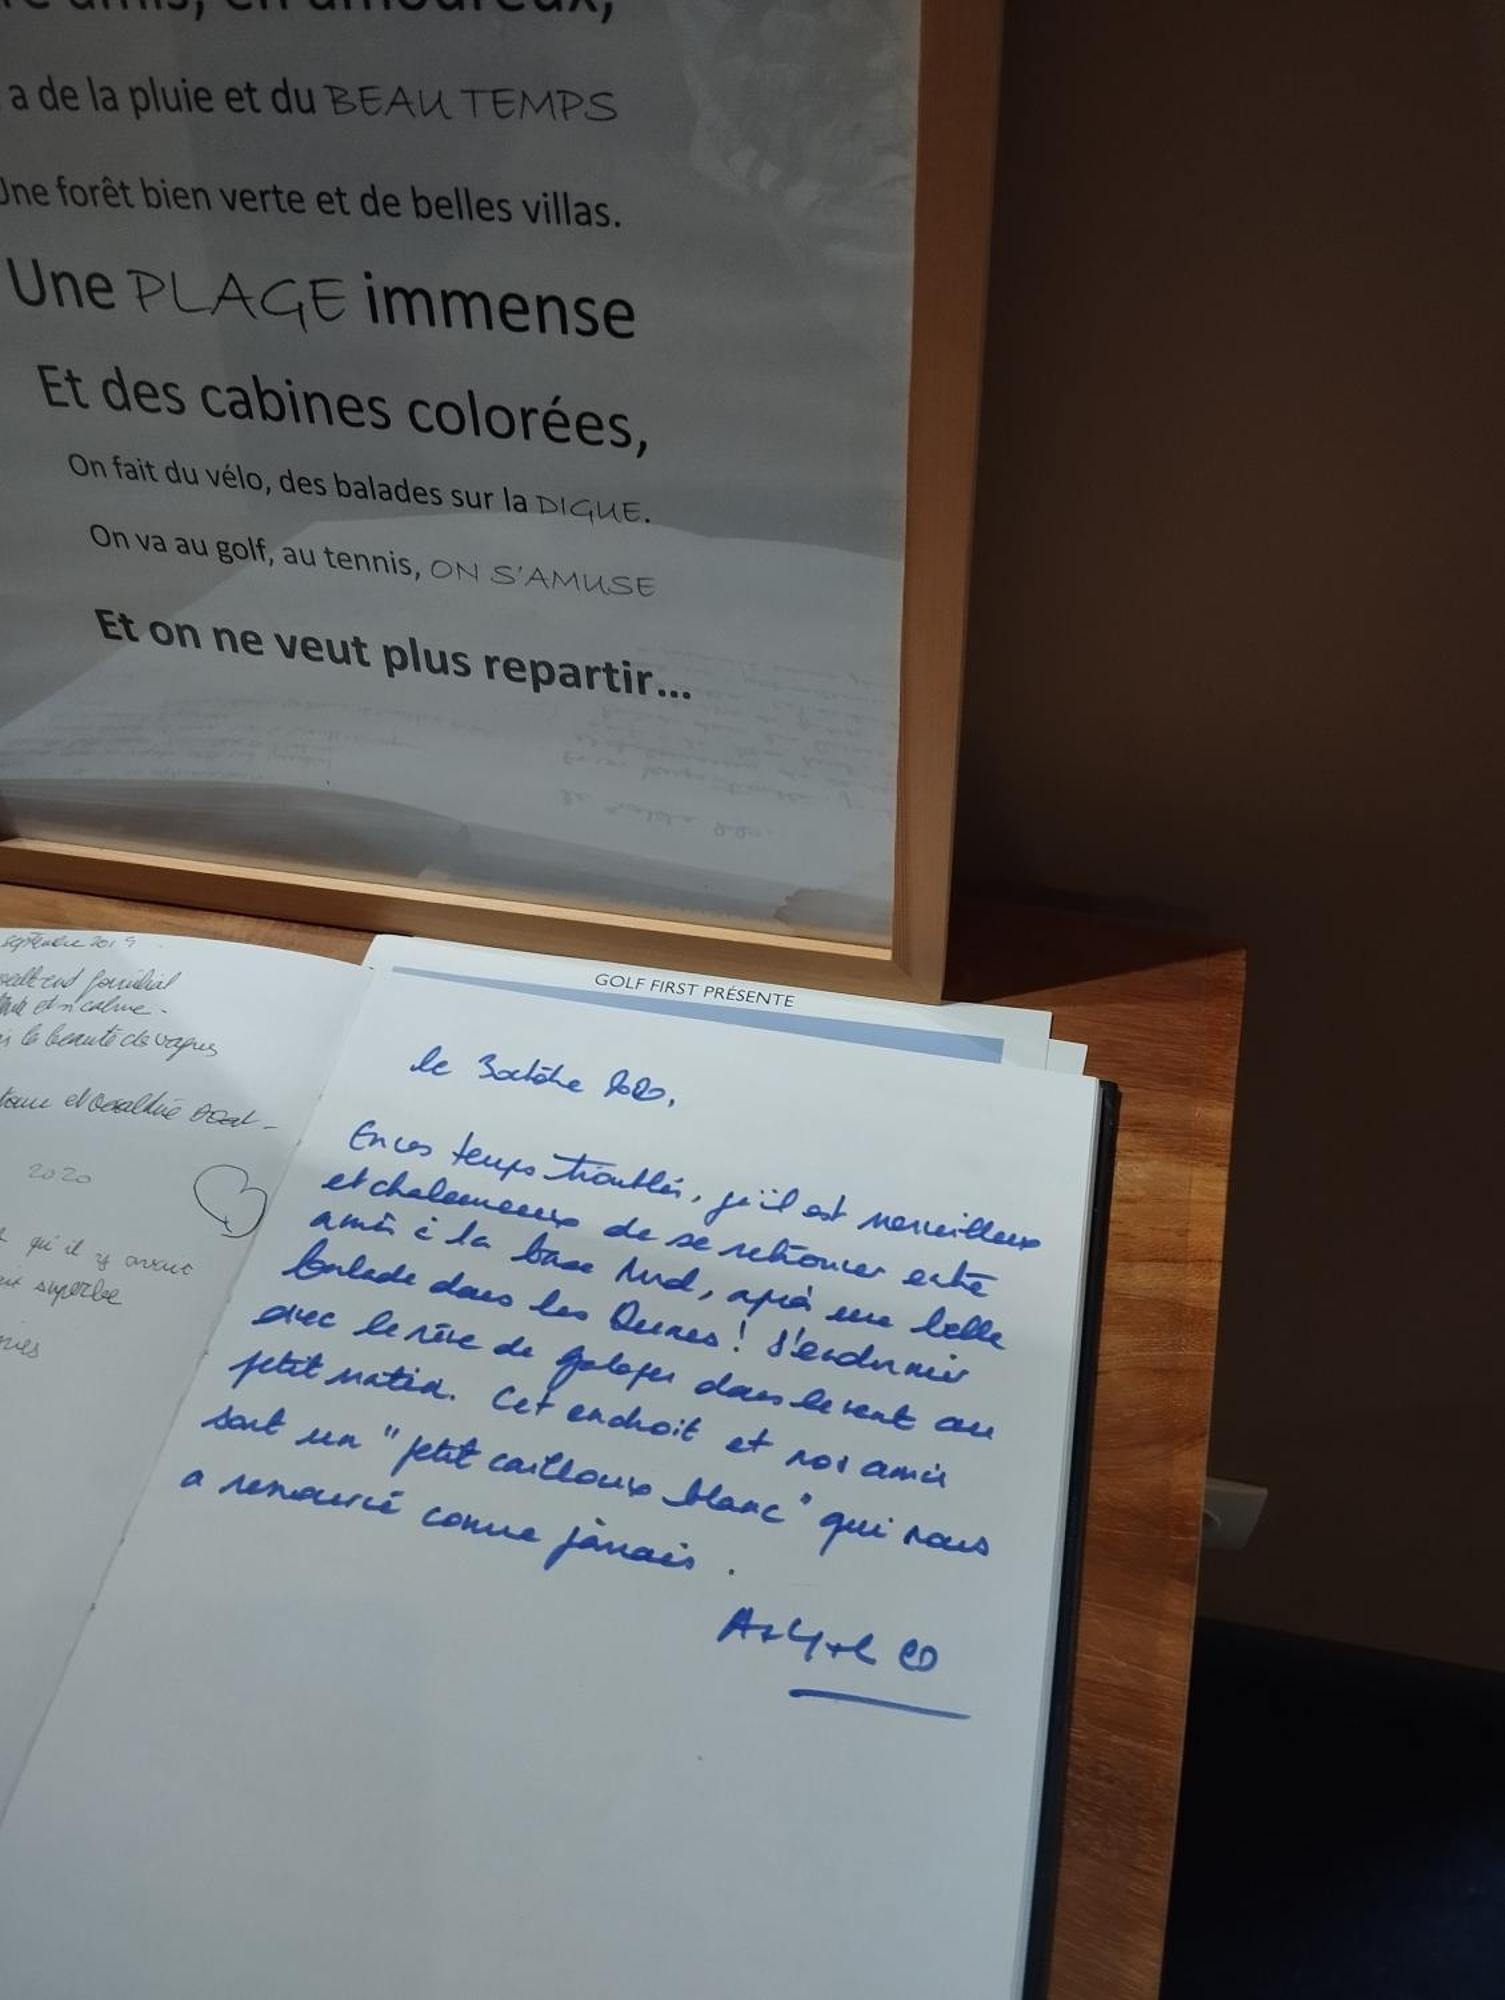 amis, en amoureux,
a de la pluie et du BEAU TEMPS
Une forêt bien verte et de belles villas.
Une PLAGE immense
Et des cabines colorées,
On fait du vélo, des balades sur la DIGUE.
On va au golf, au tennis, ON S'AMUSE
Et on ne veut plus repartir...
GOLF FIRST PRÉSENTE
septembre 2019
familial
et
la beauté de vagues
et
2020
qu'il y avait
superbe
le 3 octobre 2020,
En ces temps troublés, qu'il est merveilleux
et chaleureux de se retrouver entre
amis à la base Nord, après une belle
balade dans les Dunes ! S'endormir
avec le rêve de galoper dans le vent au
petit matin. Cet endroit et nos amis
sont un "petit cailloux blanc" qui nous
a ressourcé comme jamais.